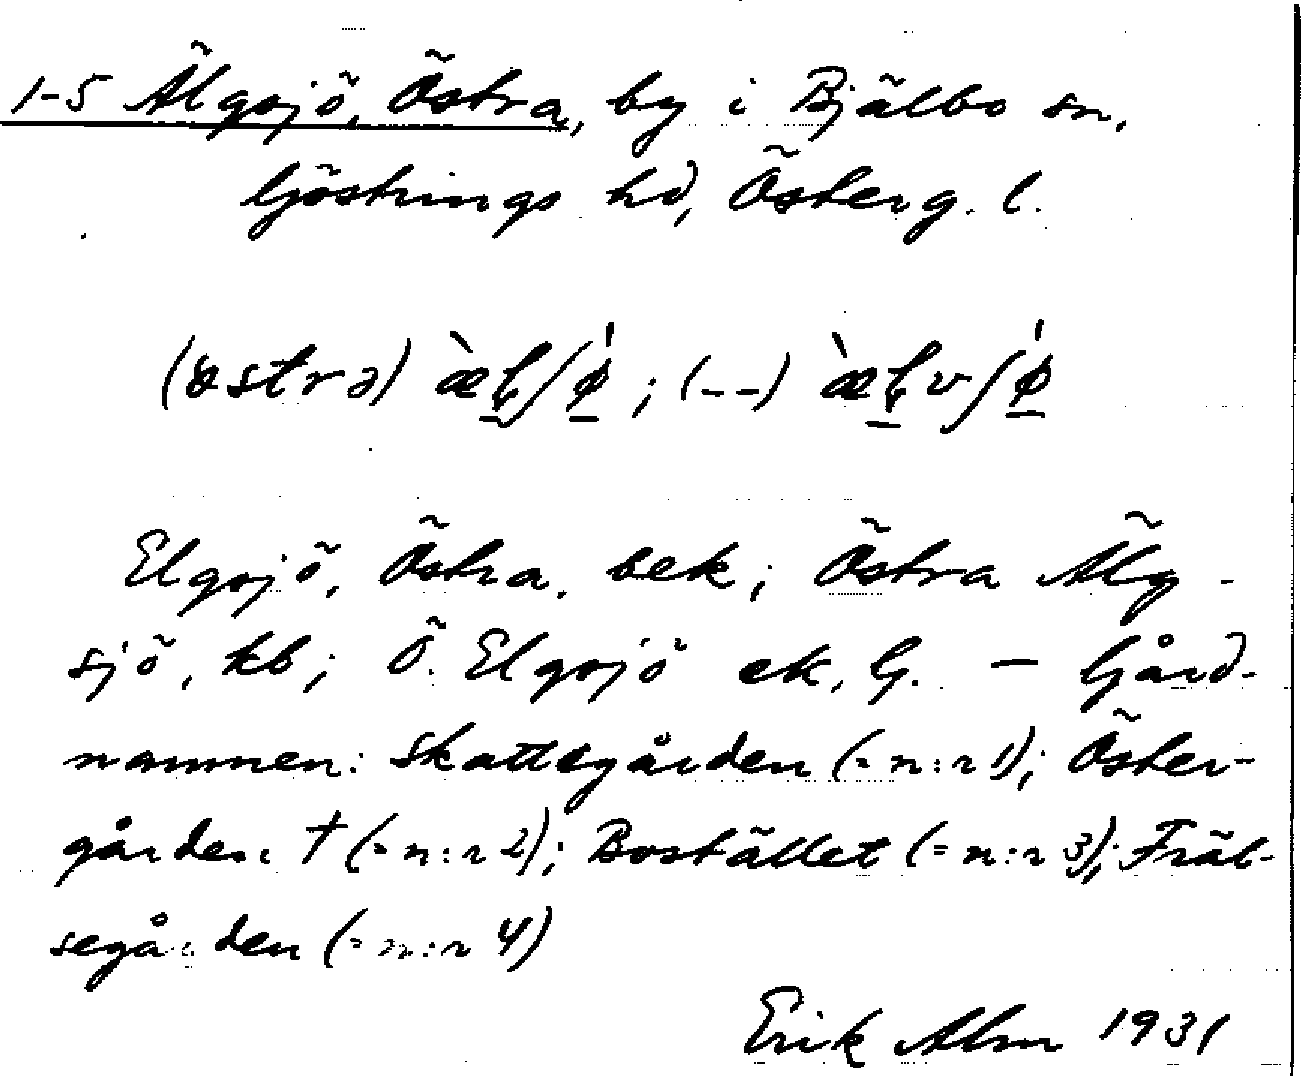 1-5 Älgsjö, Östra, by i Bjälbo sn,
Göstrings hd, Österg. l.
(östrə) æ̀ɭʃø̀; (--) æ̀ɭvʃø̀
Elgsjö, Östra, bek; Östra Älg-
sjö, kb; Ö. Elgsjö ek, G. — Gård-
namnen: Skattegården (= n:r 1); Öster-
gården † (= n:r 2); Bostället (= n:r 3); Fräl-
segården (= n:r 4)
Erik Alm 1931